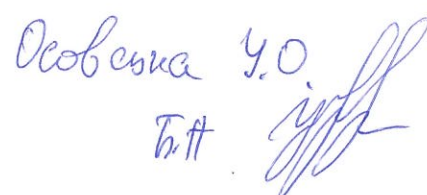 Осовська У.О
Б.А